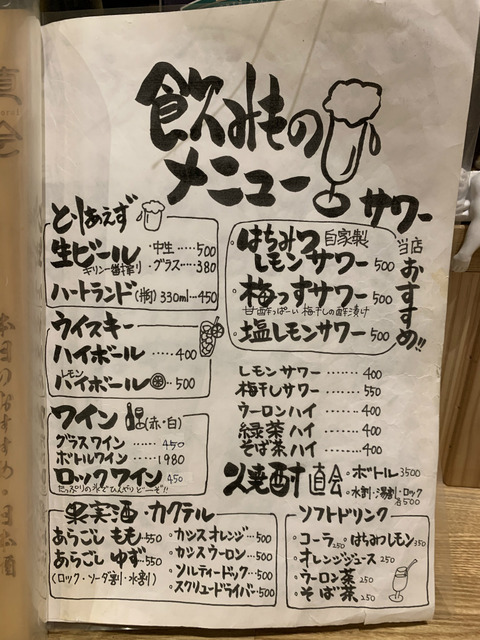 飲みもの
メニュー
とりあえず
生ビール ・中生……500
キリン一番搾り ・グラス……380
ハートランド(瓶)330ml…450
ウイスキー
ハイボール……400
レモン
ハイボール……500
ワイン (赤・白)
グラスワイン……450
ボトルワイン……1980
ロックワイン 450
たっぷりの氷でひんやりどーぞ!!
サワー
当店おすすめ!!
・はちみつ 自家製
レモンサワー 500
・梅っすサワー 500
甘酢っぱーい 梅干しの酢漬け
・塩レモンサワー 500
レモンサワー……400
梅干しサワー……550
ウーロンハイ……400
緑茶ハイ……400
そば茶ハイ……400
焼酎 直会 ・ボトル 3500
・水割・湯割・ロック
各500
果実酒・カクテル
あらごし もも…550
あらごし ゆず…550
(ロック・ソーダ割・水割)
・カシスオレンジ…500
・カシスウーロン…500
・ソルティードック…500
・スクリュードライバー…500
ソフトドリンク
・コーラ250 ・はちみつレモン350
・オレンジジュース 250
・ウーロン茶 250
・そば茶 250
直会
本日のおすすめ・日本酒